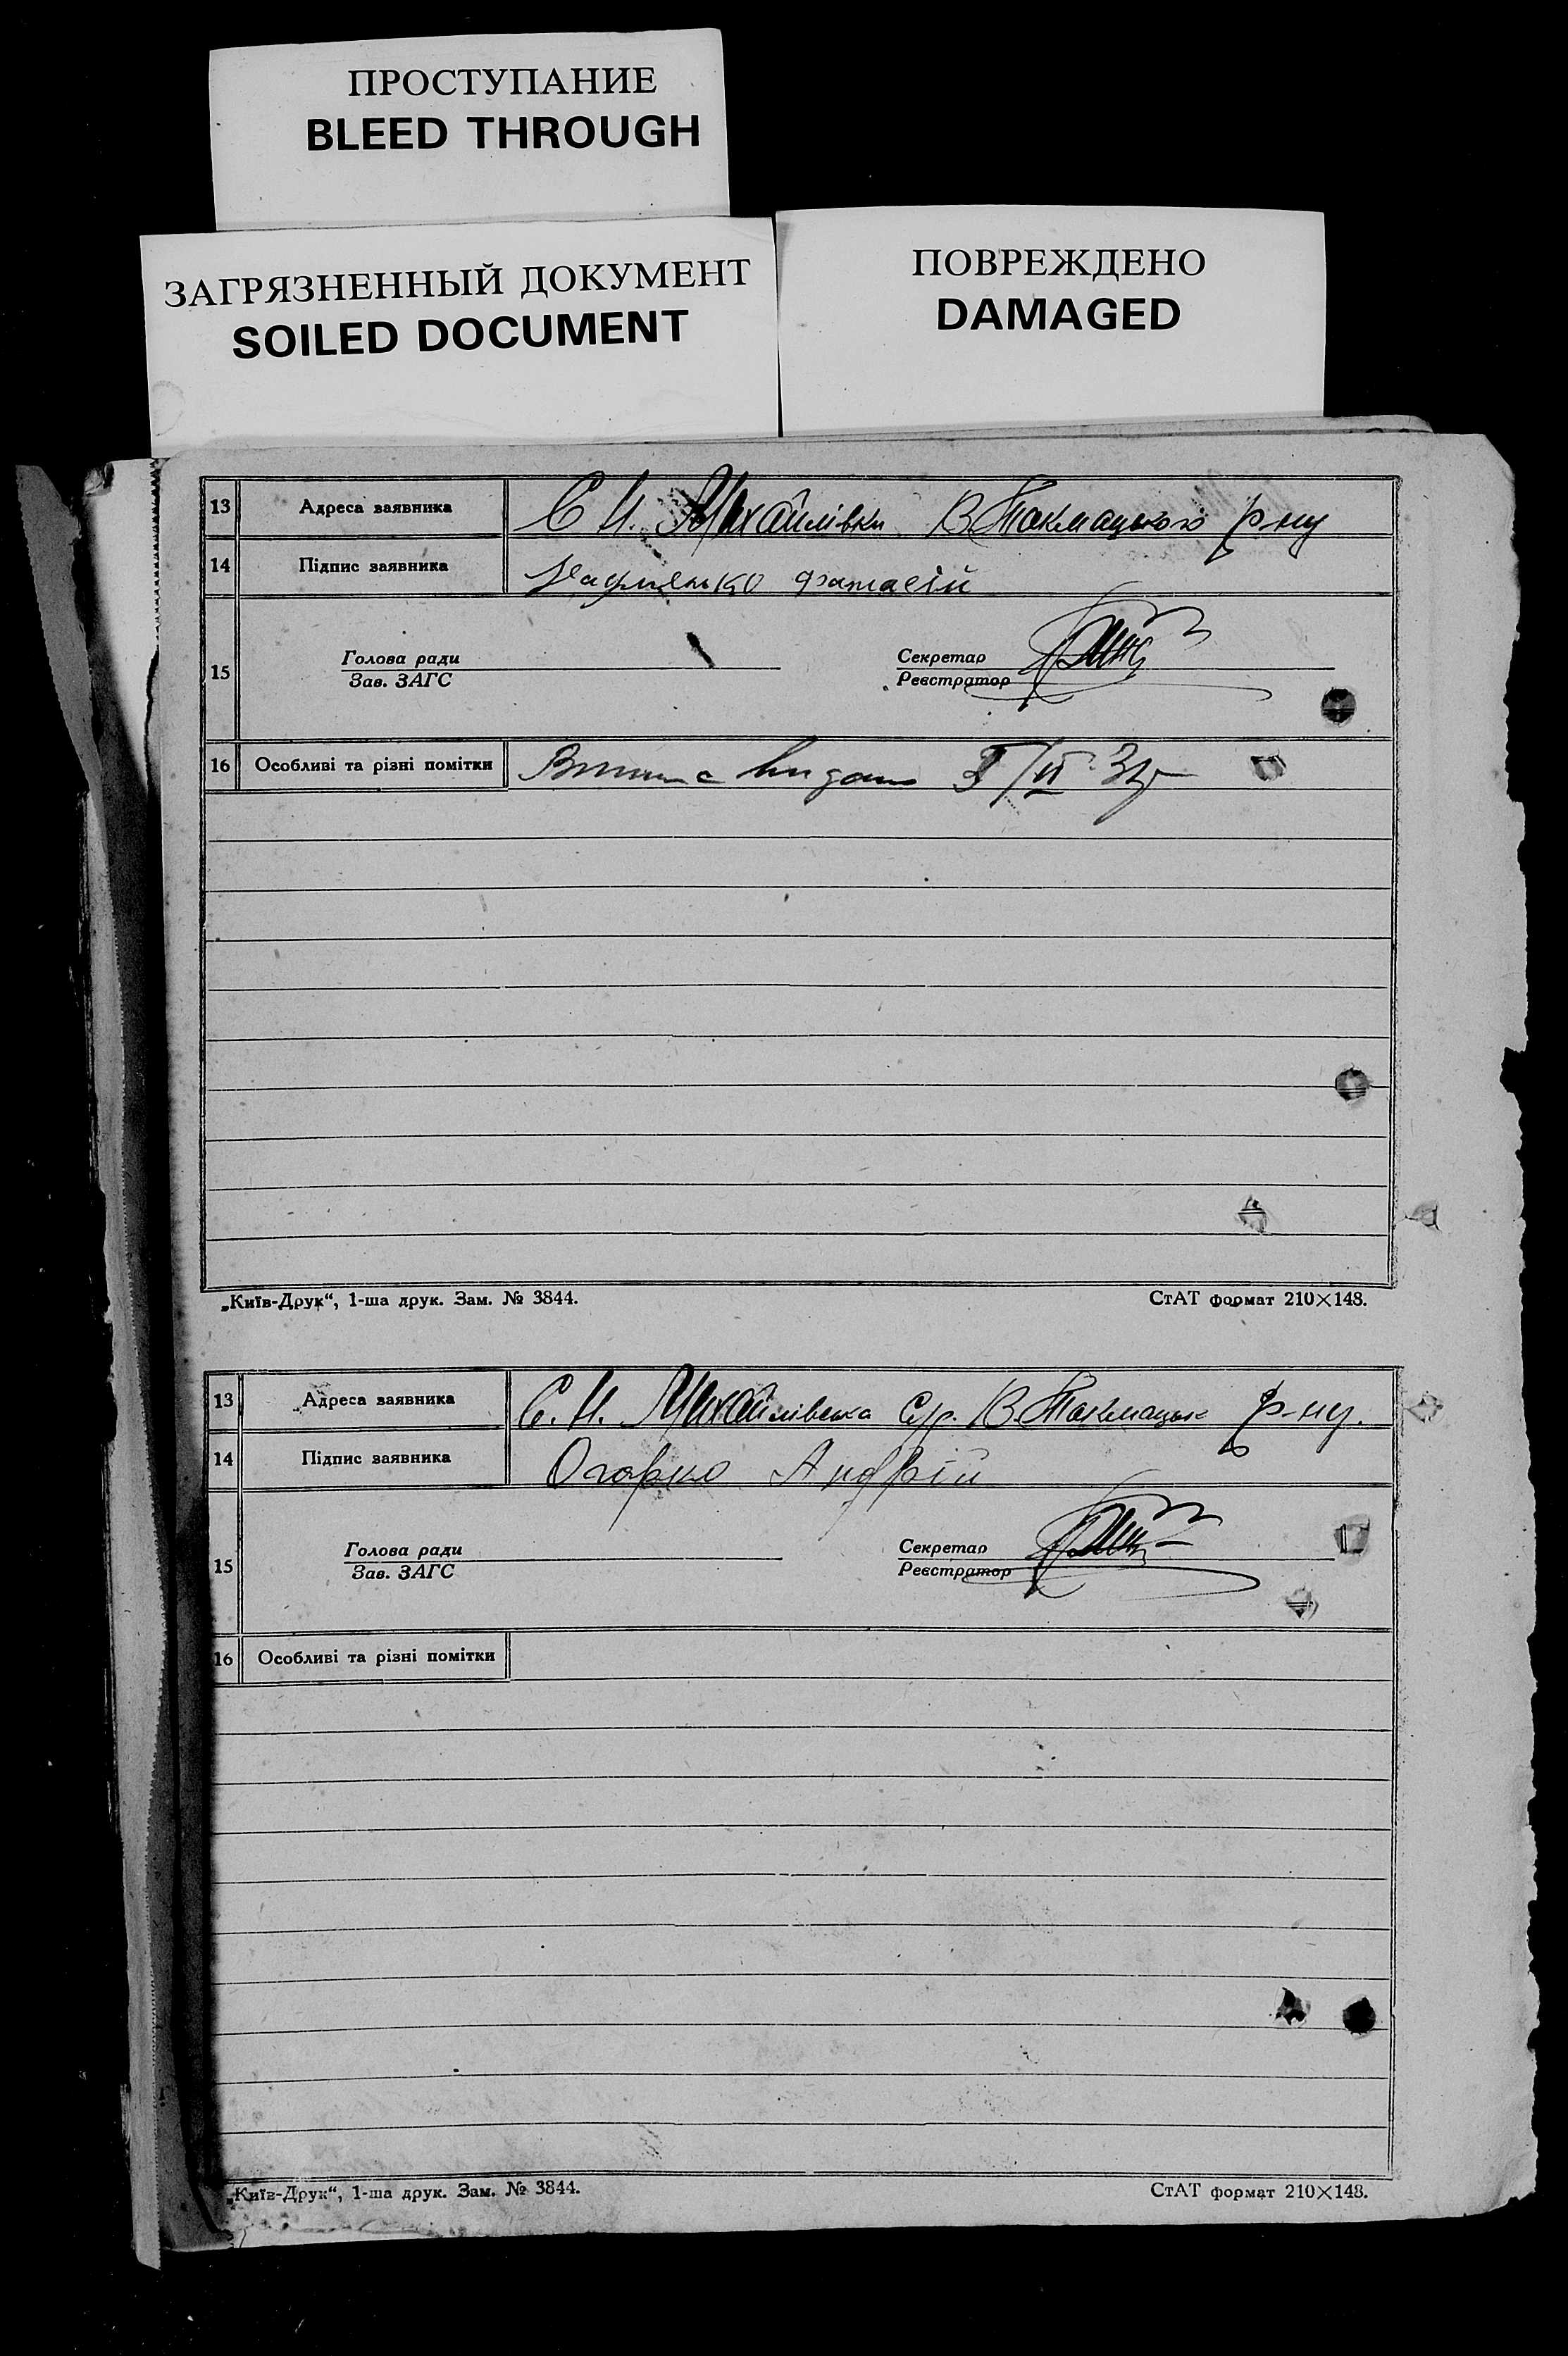 ПРОСТУПАНИЕ
BLEED THROUGH
ЗАГРЯЗНЕННЫЙ ДОКУМЕНТ
SOILED DOCUMENT
ПОВРЕЖДЕНО
DAMAGED
13 Адреса заявника С Н. Михайлівки В Токмацького р-ну
14 Підпис заявника
15 Голова ради Секретар
Зав. ЗАГС Реєстратор
16 Особливі та різні помітки
„Київ-Друк“, 1-ша друк. Зам. № 3844. СтАТ формат 210×148.
13 Адреса заявника С. Н. Михайлівська с/р. В. Токмацьк р-ну.
14 Підпис заявника Огарко Андрій
15 Голова ради Секретар
Зав. ЗАГС Реєстратор
16 Особливі та різні помітки
„Київ-Друк“, 1-ша друк. Зам. № 3844. СтАТ формат 210×148.